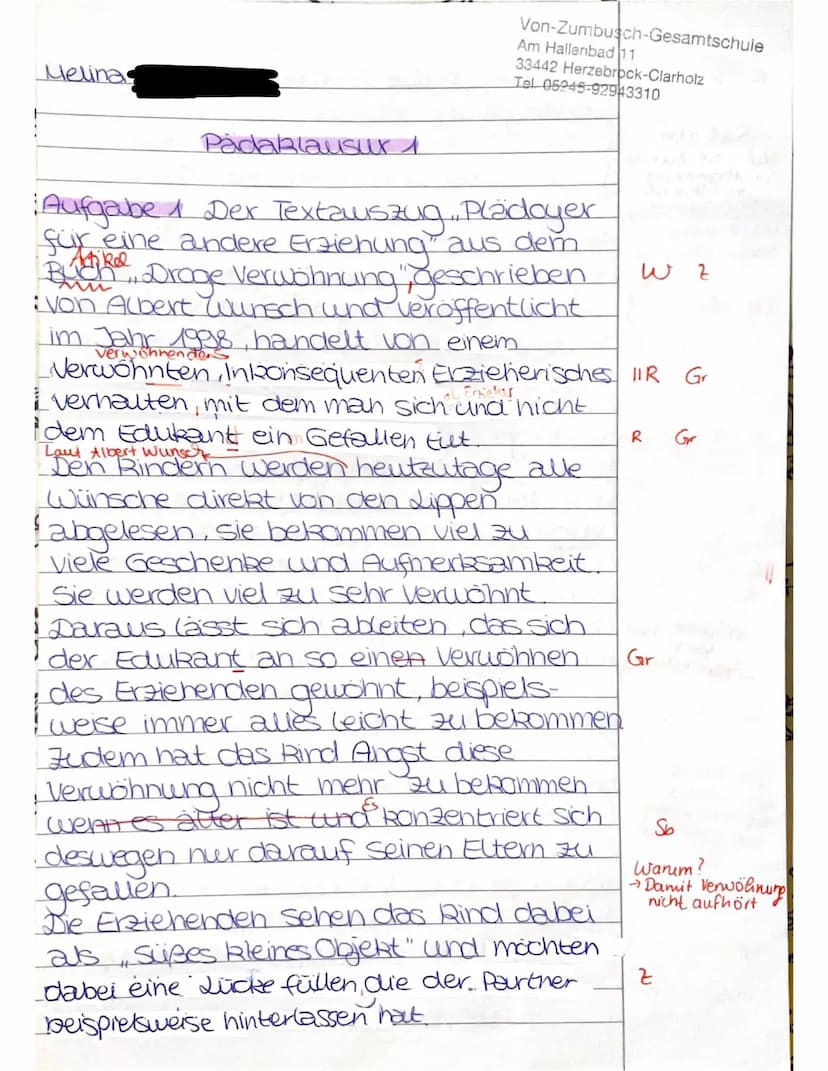 Von-Zumbusch-Gesamtschule
Am Hallenbad 11
33442 Herzebrock-Clarholz
Tel. 05245-92943310
Melina
Pädaklausur 1
Aufgabe 1 Der Textauszug „Plädoyer
für eine andere Erziehung" aus dem
Artikel
Buch „Droge Verwöhnung", geschrieben
W Z
von Albert Wunsch und veröffentlicht
im Jahr 1998, handelt von einem
verwöhnendes
Verwöhnten, Inkonsequenten Erzieherisches
IIR Gr
verhalten, mit dem man sich und nicht
dem Edukant ein Gefallen tut.
R Gr
Laut Albert Wunsch
Den Kindern werden heutzutage alle
Wünsche direkt von den Lippen
abgelesen, sie bekommen viel zu
viele Geschenke und Aufmerksamkeit.
Sie werden viel zu sehr verwöhnt.
Daraus lässt sich ableiten, das sich
der Edukant an so einen Verwöhnen
Gr
des Erziehenden gewöhnt, beispiels-
weise immer alles leicht zu bekommen
Zudem hat das Kind Angst diese
Verwöhnung nicht mehr zu bekommen
Es
wenn es älter ist und konzentriert sich
Sb
deswegen nur darauf seinen Eltern zu
gefallen.
Warum?
→ Damit Verwöhnung
nicht aufhört
Die Erziehenden sehen das Kind dabei
als „süßes kleines Objekt" und möchten
dabei eine Lücke füllen, die der Partner
Z
beispielsweise hinterlassen hat.